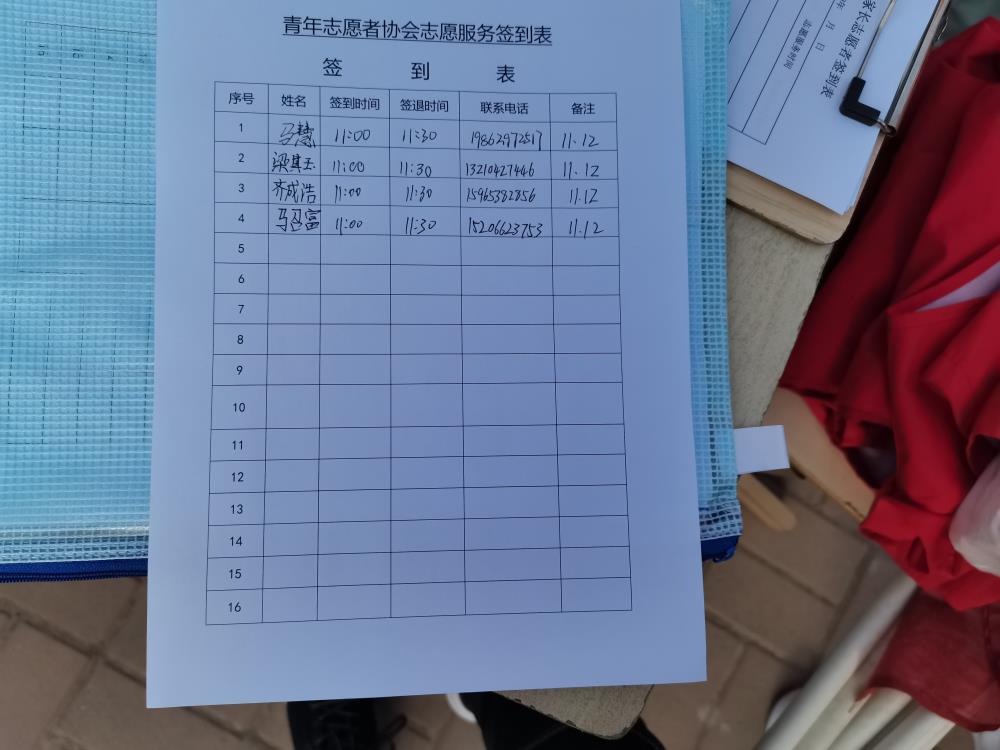 青年志愿者协会志愿服务签到表
签 到 表
序号 姓名 签到时间 签退时间 联系电话 备注
1 马慧 11:00 11:30 19862972517 11.12
2 梁其玉 11:00 11:30 13210427446 11.12
3 齐成浩 11:00 11:30 15965382856 11.12
4 马召富 11:00 11:30 15206623753 11.12
5
6
7
8
9
10
11
12
13
14
15
16
家长志愿者签到表
年 月 日
志愿服务时间